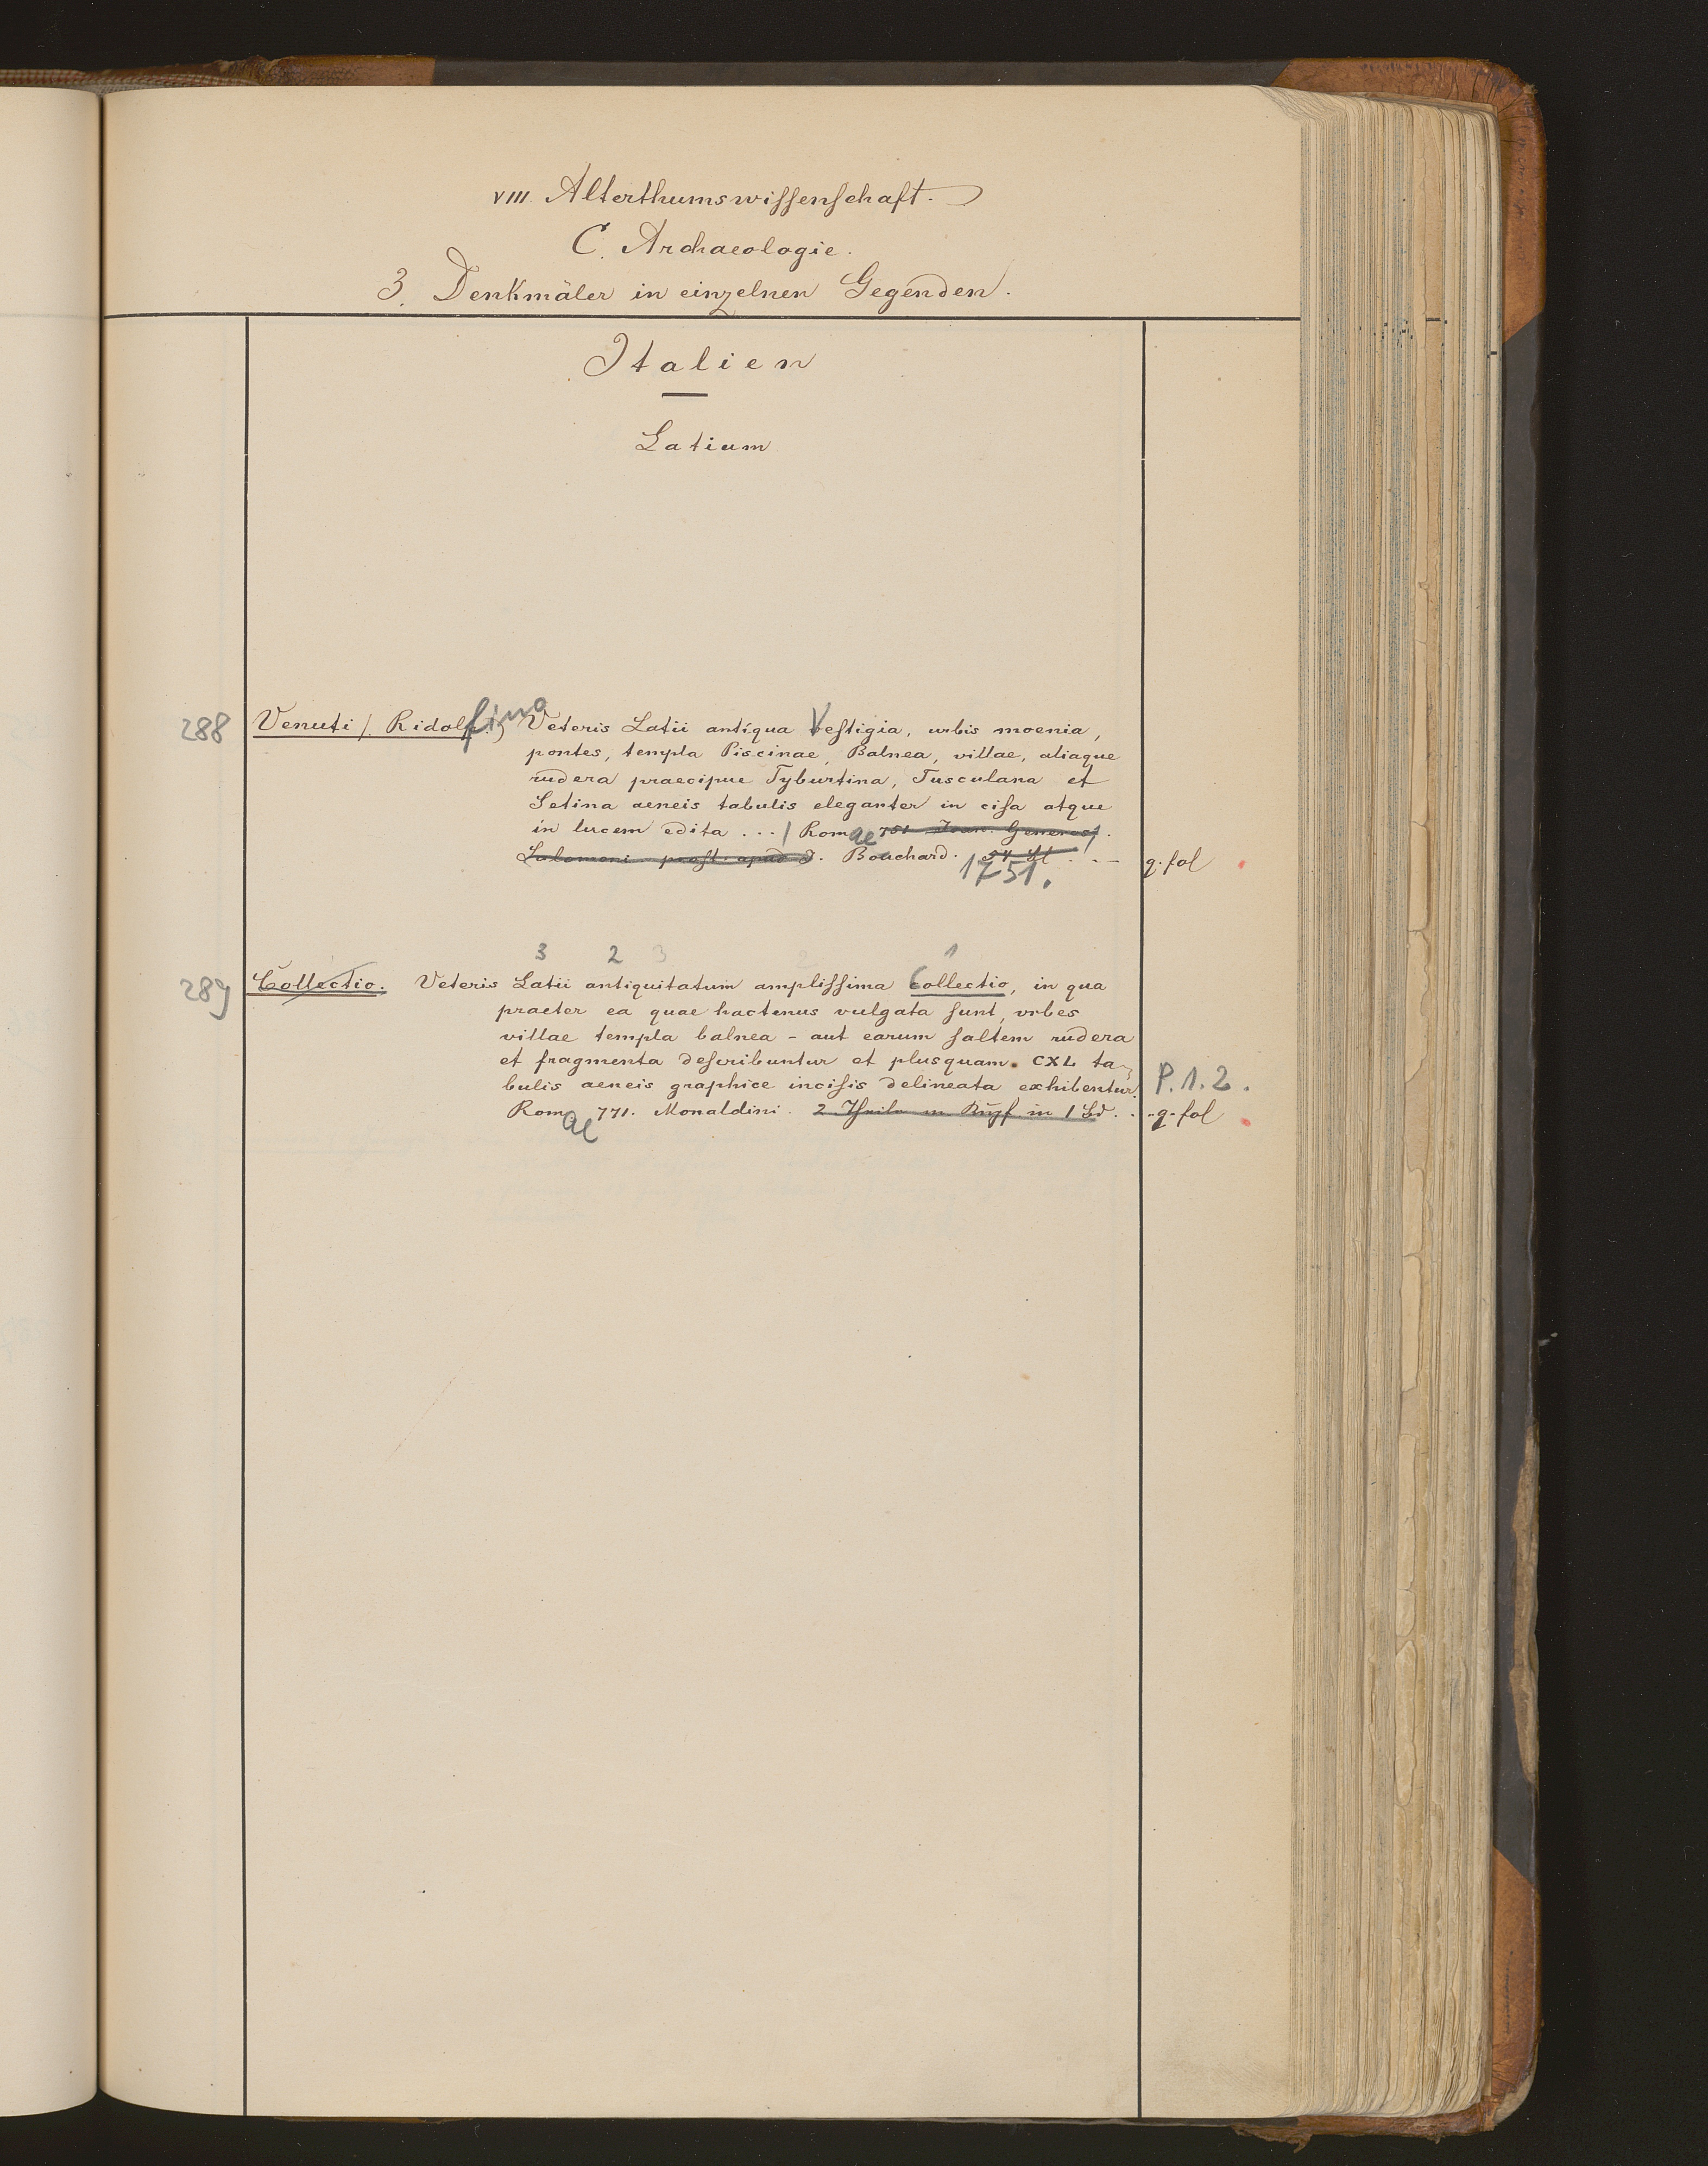 VIII. Alterthumswissenschaft.
C. Archaeologie.
3. Denkmäler in einzelnen Gegenden.
Italien
Latium
288 Venuti /. Ridolfino Veteris Latii antiqua Vestigia, urbis moenia,
pontes, templa Piscinae, Balnea, villae, aliaque
rudera praecipue Tyburtina, Tusculana et
Setina aeneis tabulis eleganter in cisa atque
in lucem edita ... / Romae 751 Joan. Generos/.
Salomoni prost. apud J. Bouchard. 54 Bl . . —
1751.
q. fol
3 2 3 2 1
289 Collectio. Veteris Latii antiquitatum amplissima Collectio, in qua
praeter ea quae hactenus vulgata sunt, urbes
villae templa balnea - aut earum saltem rudera
et fragmenta describuntur et plusquam. CXL ta-
bulis aeneis graphice incisis delineata exhibentur. P. 1. 2.
Romae 771. Monaldini. 2 Theile m. Kupf. in 1 Bd. . . q. fol